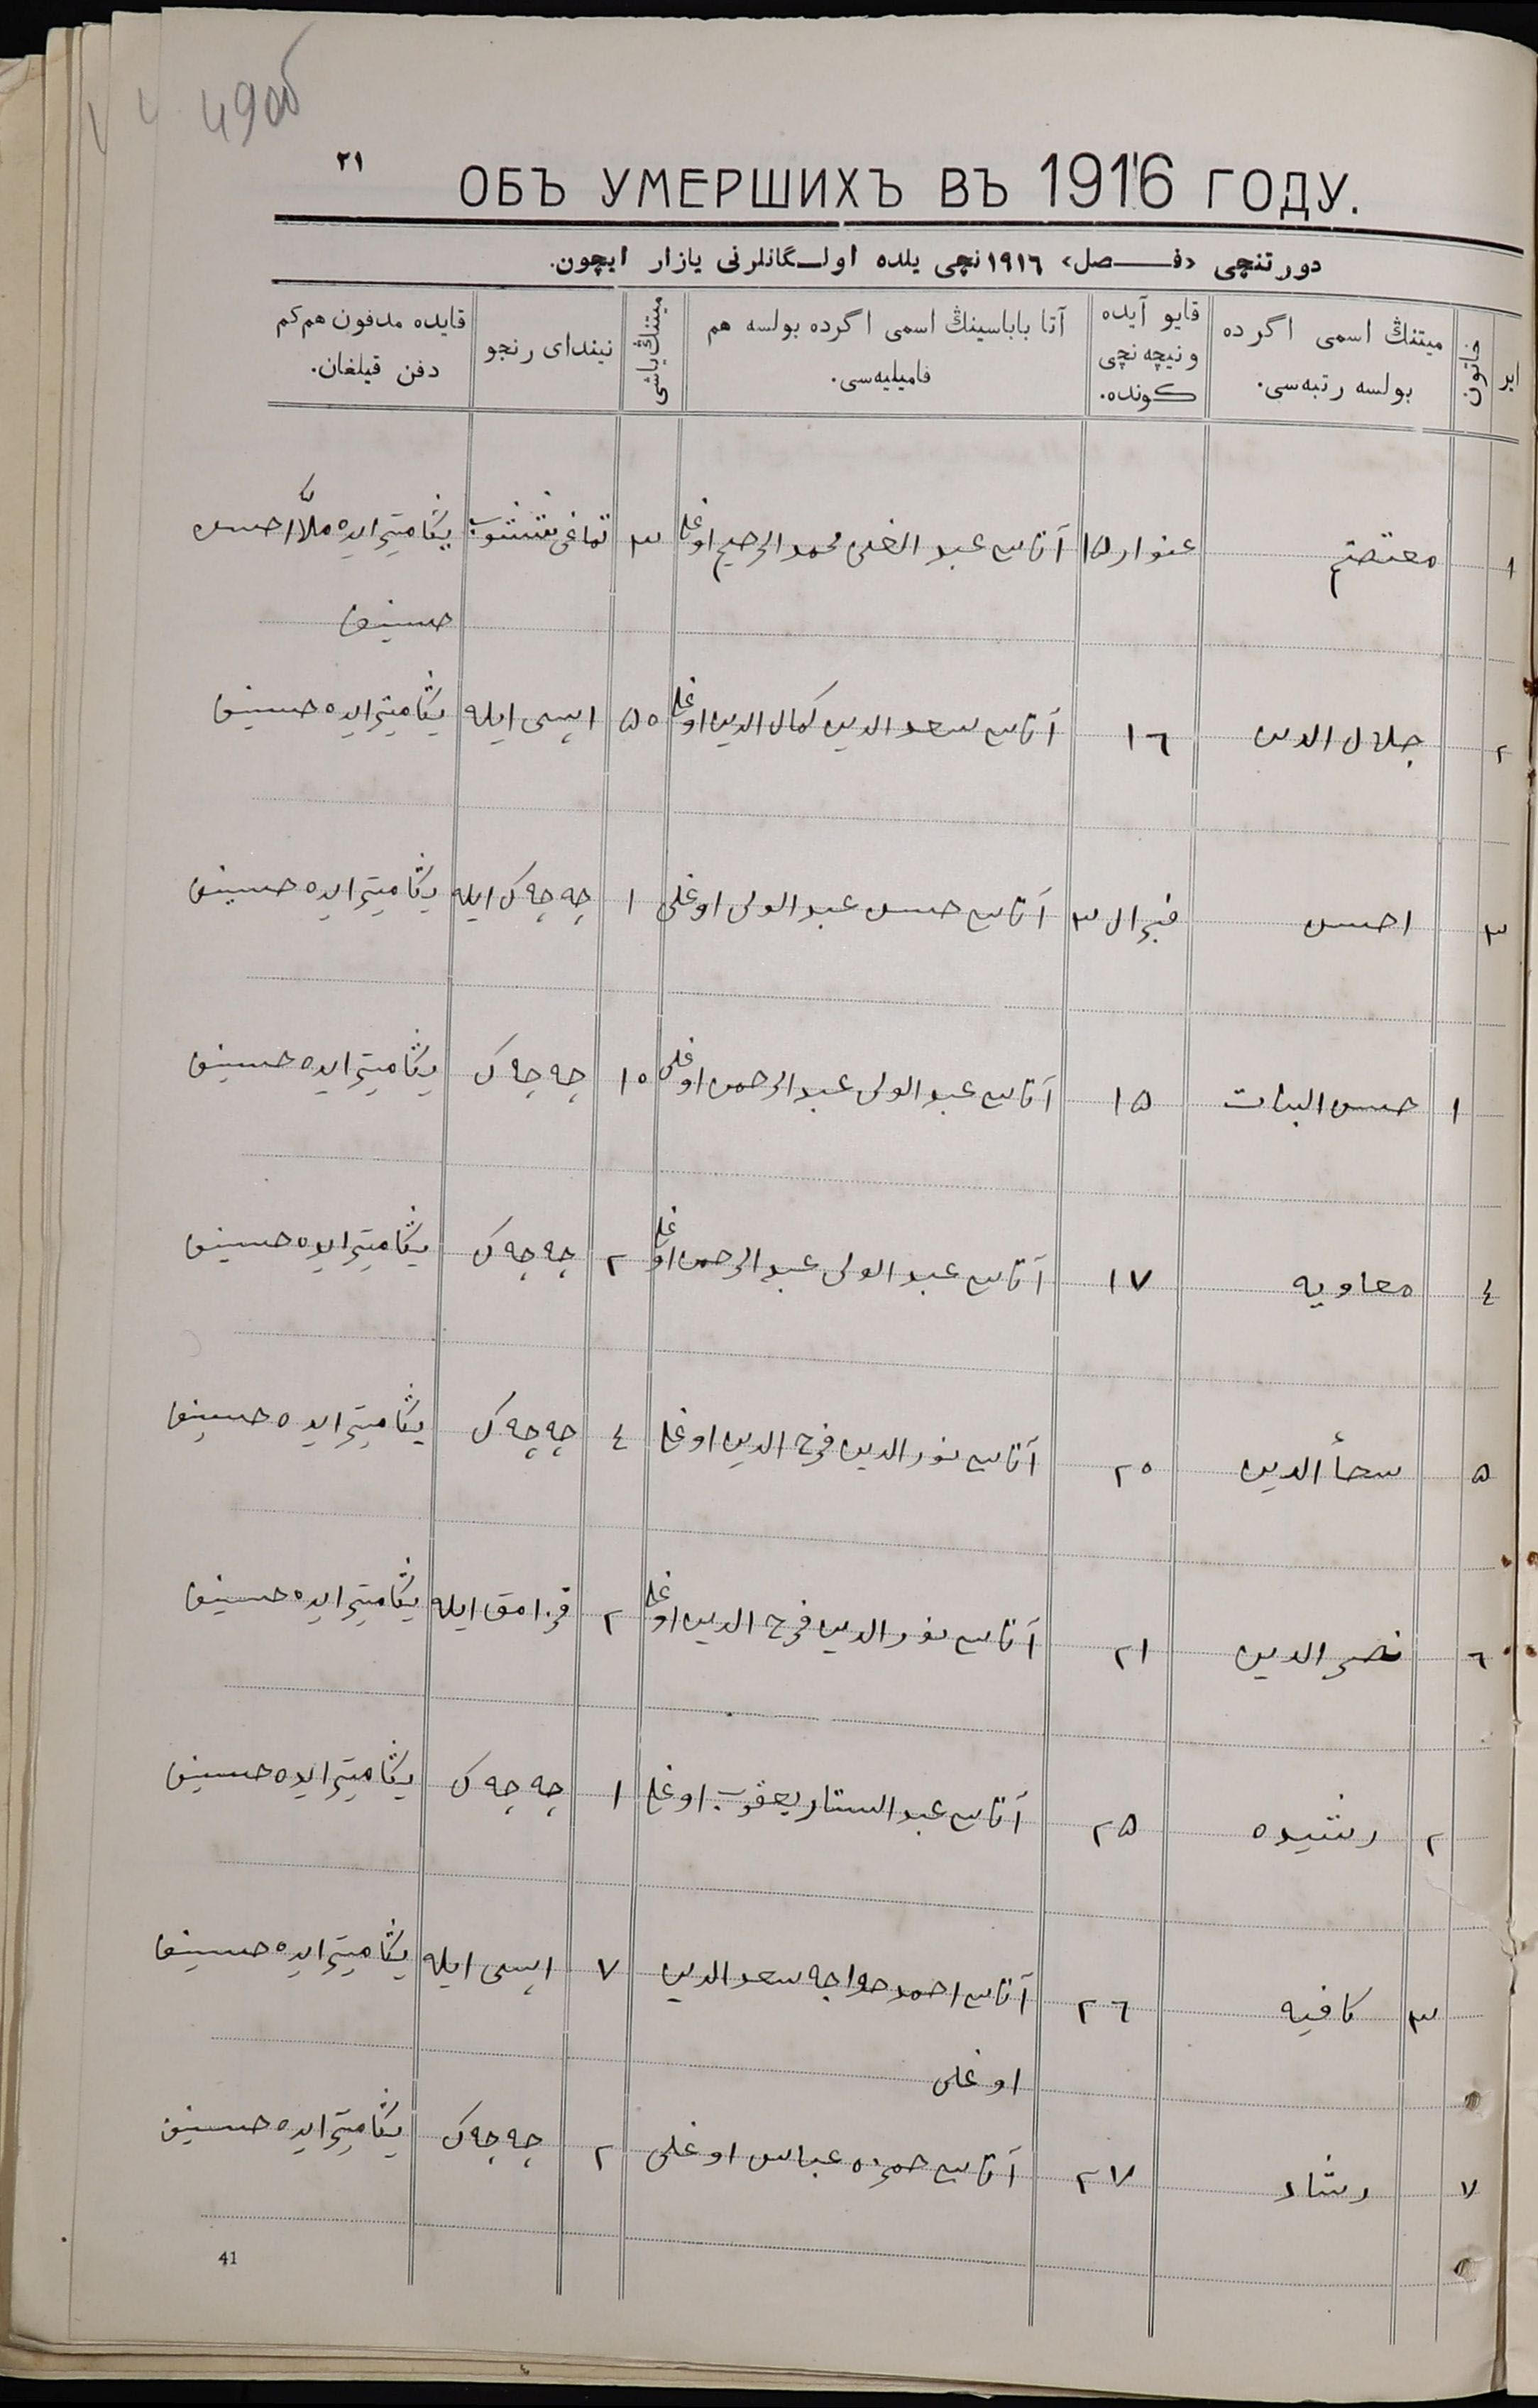 49об
٢١
ОБЪ УМЕРШИХЪ ВЪ 1916 ГОДУ.
دورتنچی ‹فـصل› ١٩١٦ نچی یلده اولـگانلرنی یازار ایچون.
ایر
خاتون
میتنڭ اسمی اگرده بولسه رتبه‌سی.
قایو آیده ونیچه نچی کونده.
آتا باباسینڭ اسمی اگرده بولسه هم فامیلیه‌سی.
میتنڭ یاشی
نیندای رنجو
قایده مدفون هم کم دفن قیلغان.
١ معتصم عنوار ١۵ آتاسی عبد الغنی محمد الرحیم اوغلی ٣ تماغی ینکا میتر ایده ملّا احسن
حسینف
٢ جلال الدین ١٦ آتاسی سعد الدین کمال الدین اوغلی ۵۵ ایسی ایله ینکا میتر ایده حسینف
٣ احسن فبرال ٣ آتاسی حسن عبد الولی اوغلی ١ چه چه ک ایله ینکا میتر ایده حسینف
١ حسن البنات ١۵ آتاسی عبد الولی عبد الرحمن اوغلی ١٥ چه چه ک ینکا میتر ایده حسینف
٤ معاویه ١٧ آتاسی عبد الولی عبد الرحمن اوغلی ٢ چه چه ک ینکا میتر ایده حسینف
۵ الدین ٢٥ آتاسی نور الدین فرح الدین اوغلی ٤ چه چه ک ینکا میتر ایده حسینف
٦ نصر الدین ٢١ آتاسی نور الدین فرح الدین اوغلی ٢ قزامق ایله ینکا میتر ایده حسینف
٢ رشیده ٢۵ آتاسی عبد الستار یعقوب اوغلی ١ چه چه ک ینکا میتر ایده حسینف
٣ کافیه ٢٦ آتاسی احمد خواجه سعد الدین ٧ ایسی ایله ینکا میتر ایده حسینف
اوغلی
٧ رشاد ٢٧ آتاسی حمزه عباس اوغلی ٢ چه چه ک ینکا میتر ایده حسینف
41